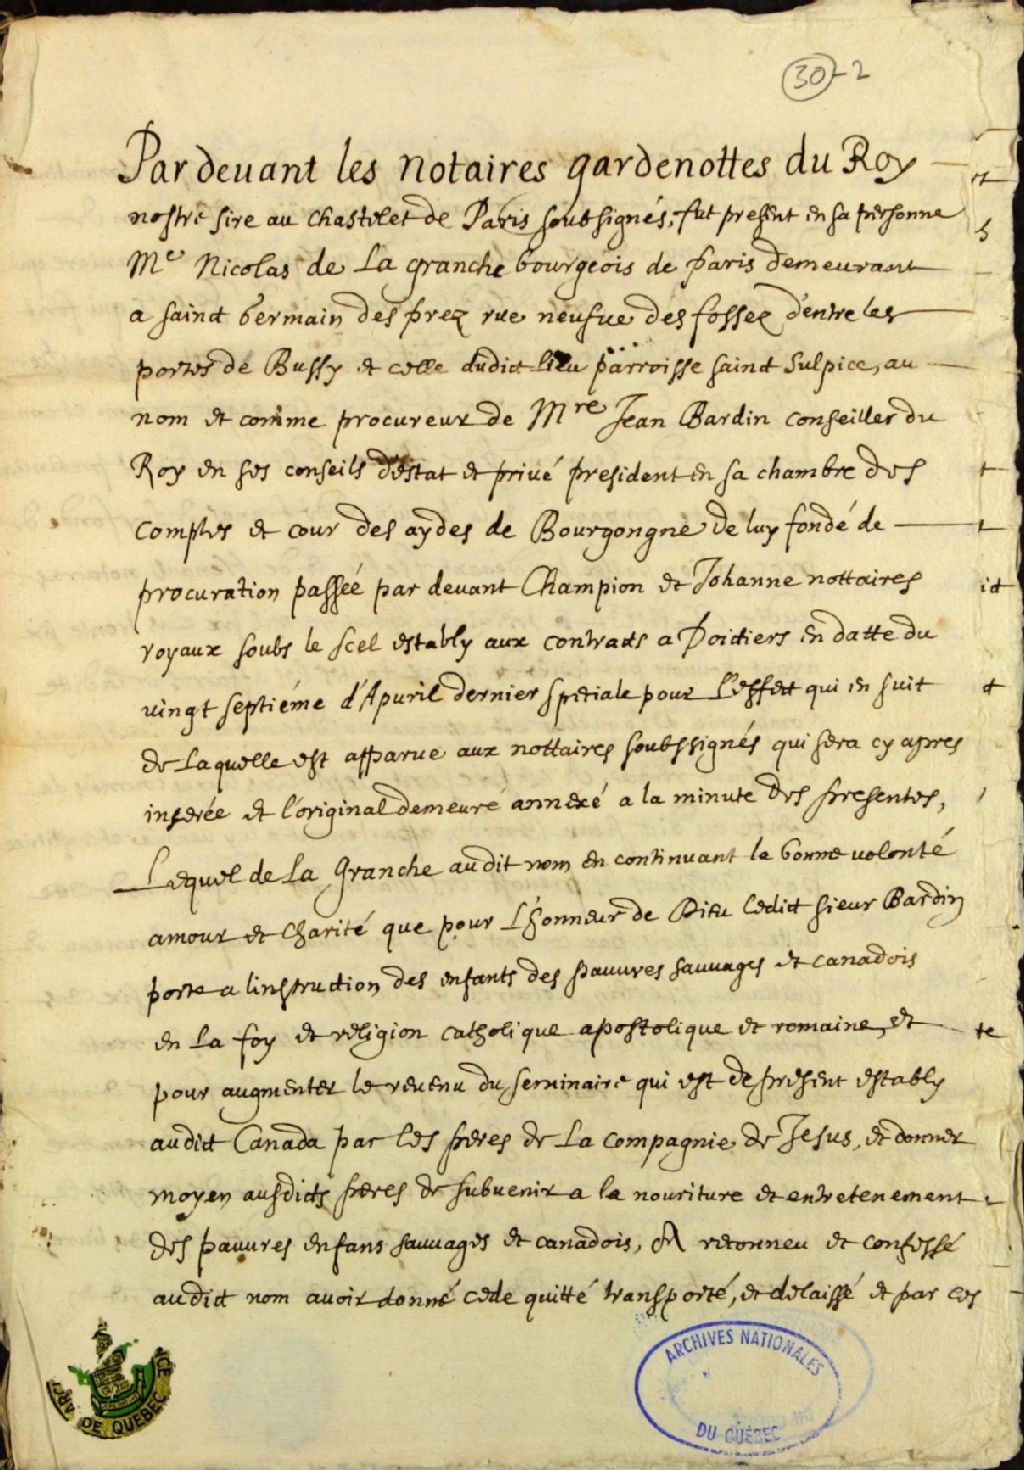 30-2
Pardeuant les notaires gardenottes du Roy
nostre sire au Chastelet de Paris soubsignés, fut present en sa personne
Me Nicolas de La granche bourgeois de paris demeurant
a sainct Germain des prez rue neufue des fossez d'entre les
portes de Bussy et celle dudict lieu parroisse sainct Sulpice, au
nom et comme procureur de Mre Jean Bardin conseiller du
Roy en ses conseils d'estat et priué president en sa chambre des
comptes et cour des aydes de Bourgongne de luy fondé de
procuration passéé par deuant Champion et Johanne nottaires
royaux soubs le scel estably aux contracts a Poictiers en datte du
vingt septiéme d'Apuril dernier speciale pour l'effect qui en suit
de laquelle est apparue aux nottaires soubssignés qui sera cy apres
inserée et l'original demeuré annexé a la minute des presentes,
Lequel de La Granche audit nom en continuant la bonne volonté
amour et charité que pour l'honneur de Dieu ledict sieur Bardin
porte a linstruction des enfants des pauures sauuages et canadois
en la foy et religion catholique apostolique et romaine, et
pour augmenter le reuenu du seminaire qui est de present estably
audict Canada par les peres de La compagnie de Jesus, et donner
moyen ausdicts peres de subuenir a la nouriture et entretenement
des pauures enfans sauuages et canadois, A reconneu et confessé
audict nom auoir donné cede quitté transporté, et delaissé et par ces
ARCHIVES NATIONALES
DU QUÉBEC
DE QUEBEC